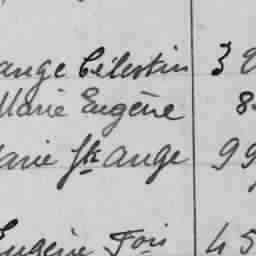 ange Célestin 3
Marie Eugène 8
arie Ste Ange 99
Eugène Fois 45